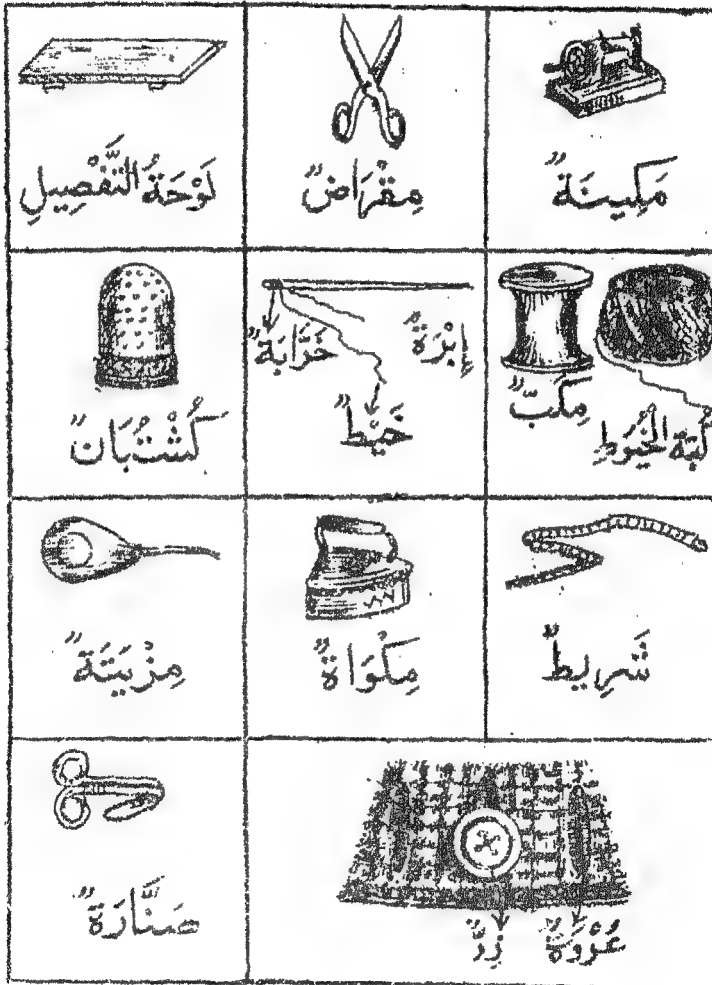 مَكِينَةٌ
مِقْرَاضٌ
لَوْحَةُ التَّفْصِيلِ
مِكَبٌّ
كُبَّةُ الْخُيُوطِ
إِبْرَةٌ
خَرَّابَةٌ
خَيْطٌ
كُشْتُبَانٌ
شَرِيطٌ
مِكْوَاةٌ
مِزْيَتَةٌ
عُرْوَةٌ
زِرٌّ
صَنَّارَةٌ